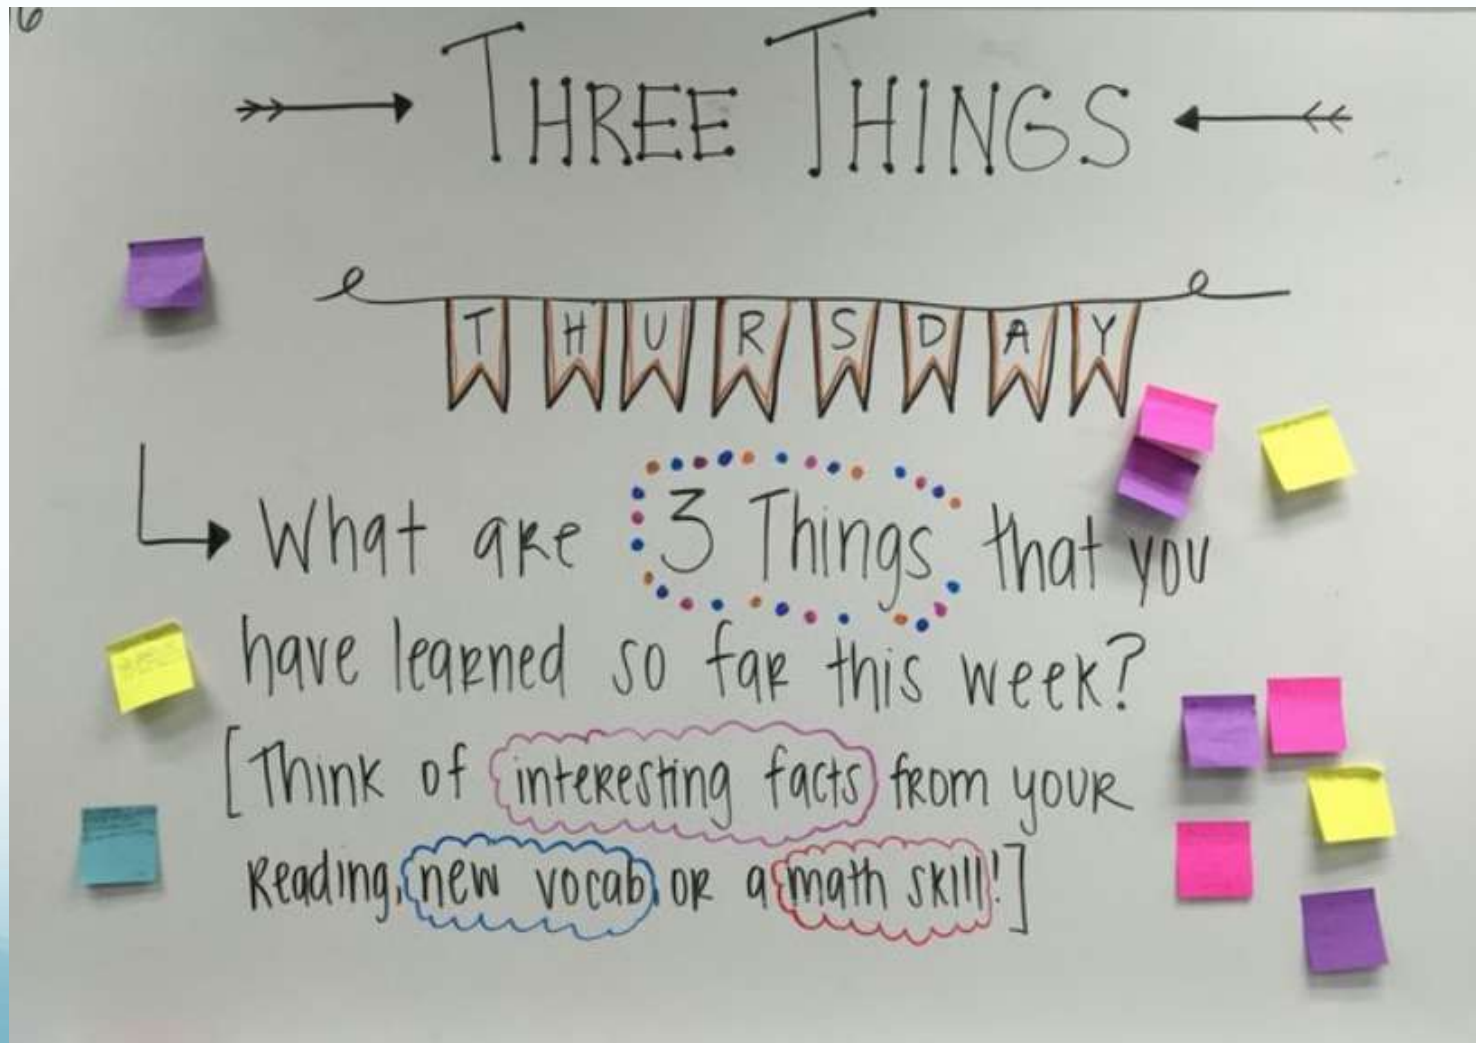 6
THREE THINGS
THURSDAY
What are 3 Things that you
have learned so far this week?
[Think of interesting facts from your
Reading, new vocab, or a math skill!]